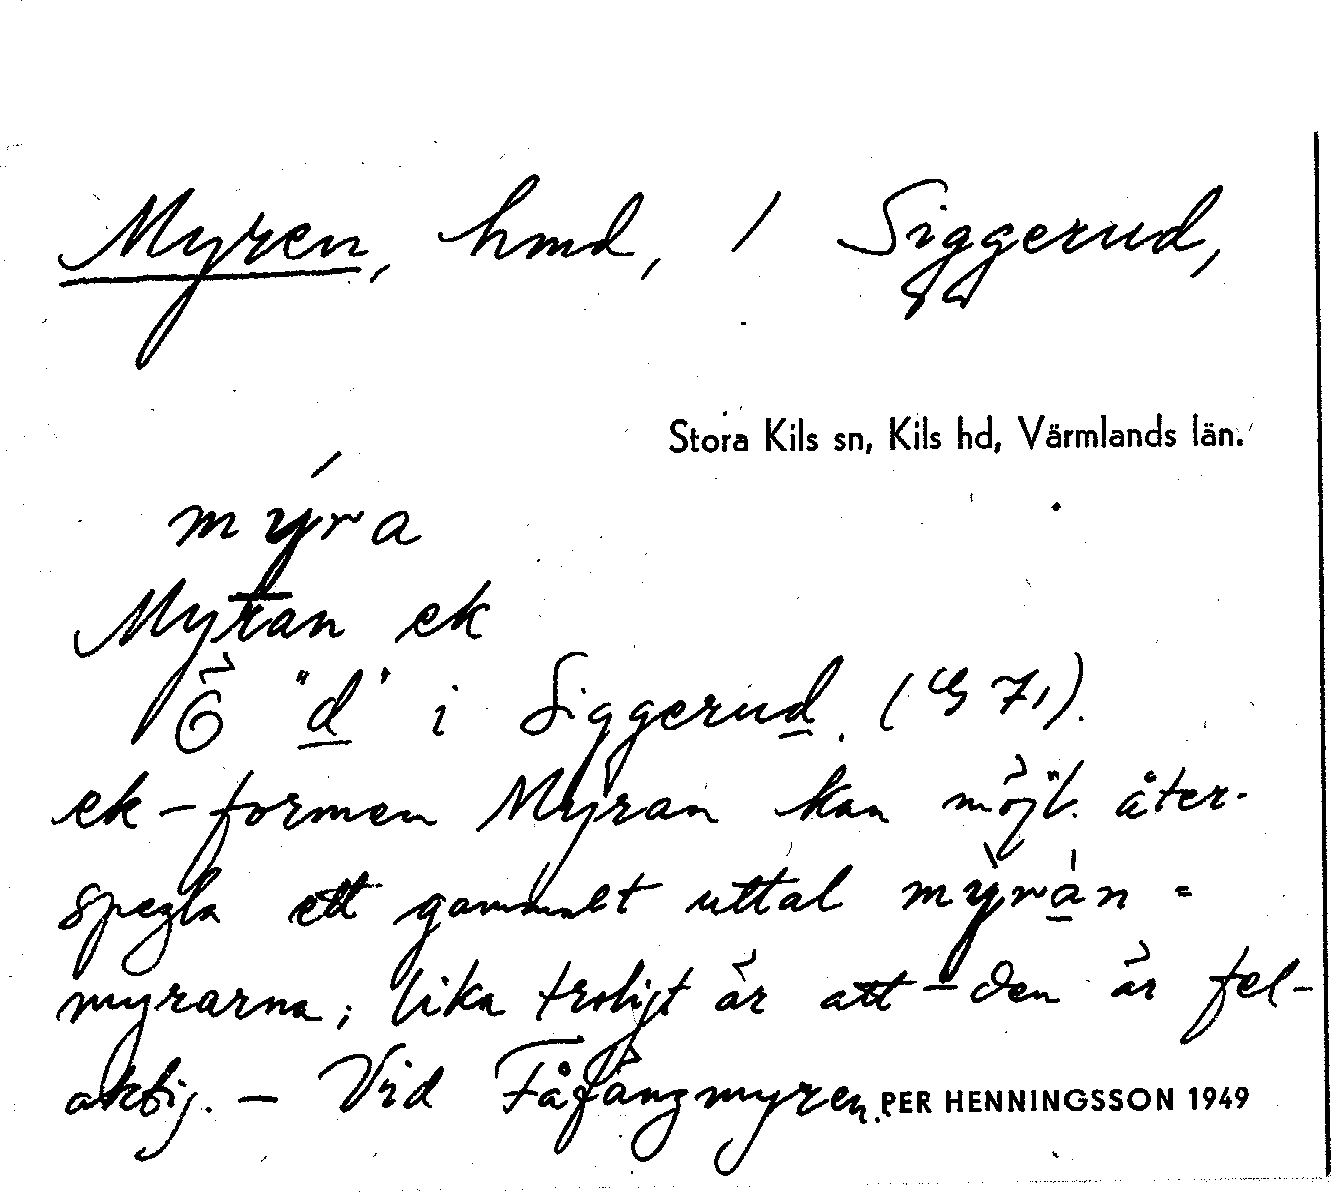 Myren, hmd, / Siggerud,
Stora Kils sn, Kils hd, Värmlands län.
mýra
Myran ek
Ö "d" i Siggerud. (G 71).
ek-formen Myran kan möjl. åter-
spegla ett gammalt uttal mỳrán =
myrarna; lika troligt är att den är fel-
aktig. – Vid Fåfängmyren.
PER HENNINGSSON 1949